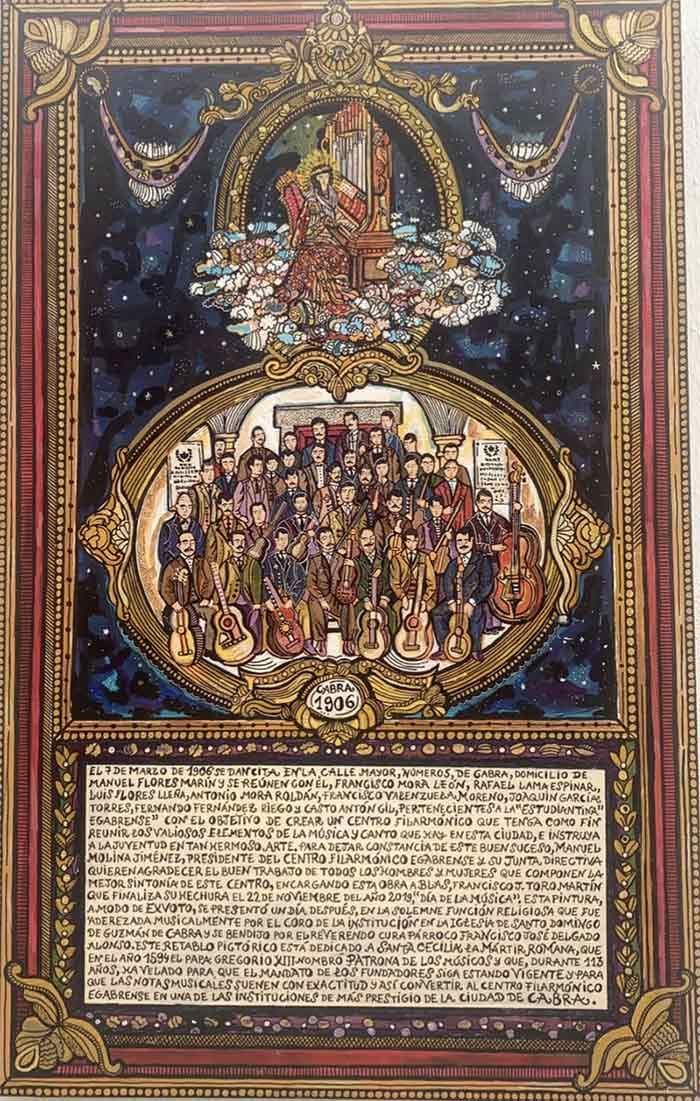 CABRA
1906
EL 7 DE MARZO DE 1906 SE DAN CITA EN LA CALLE MAYOR, NÚMERO 5, DE CABRA, DOMICILIO DE
MANUEL FLORES MARÍN Y SE REÚNEN CON ÉL, FRANCISCO MORA LEÓN, RAFAEL LAMA ESPINAR,
LUIS FLORES LUEÑA, ANTONIO MORA ROLDÁN, FRANCISCO VALENZUELA MORENO, JOAQUÍN GARCÍA
TORRES, FERNANDO FERNÁNDEZ RIEGO Y CASTO ANTÓN GIL, PERTENECIENTES A LA "ESTUDIANTINA
EGABRENSE" CON EL OBJETIVO DE CREAR UN CENTRO FILARMÓNICO QUE TENGA COMO FIN
REUNIR LOS VALIOSOS ELEMENTOS DE LA MÚSICA Y CANTO QUE HAY EN ESTA CIUDAD, E INSTRUYA
A LA JUVENTUD EN TAN HERMOSO ARTE. PARA DEJAR CONSTANCIA DE ESTE BUEN SUCESO, MANUEL
MOLINA JIMÉNEZ, PRESIDENTE DEL CENTRO FILARMÓNICO EGABRENSE Y SU JUNTA DIRECTIVA
QUIEREN AGRADECER EL BUEN TRABAJO DE TODOS LOS HOMBRES Y MUJERES QUE COMPONEN LA
MEJOR SINTONÍA DE ESTE CENTRO, ENCARGANDO ESTA OBRA A BLAS, FRANCISCO J. TORO MARTÍN
QUE FINALIZA SU HECHURA EL 22 DE NOVIEMBRE DEL AÑO 2019, "DÍA DE LA MÚSICA". ESTA PINTURA,
A MODO DE EXVOTO, SE PRESENTÓ UN DÍA DESPUÉS, EN LA SOLEMNE FUNCIÓN RELIGIOSA QUE FUE
ADEREZADA MUSICALMENTE POR EL CORO DE LA INSTITUCIÓN EN LA IGLESIA DE SANTO DOMINGO
DE GUZMÁN DE CABRA Y SE BENDIJO POR EL REVERENDO CURA PÁRROCO FRANCISCO JOSÉ DELGADO
ALONSO. ESTE RETABLO PICTÓRICO ESTÁ DEDICADO A SANTA CECILIA LA MÁRTIR ROMANA, QUE
EN EL AÑO 1594 EL PAPA GREGORIO XIII NOMBRÓ PATRONA DE LOS MÚSICOS Y QUE, DURANTE 113
AÑOS, HA VELADO PARA QUE EL MANDATO DE LOS FUNDADORES SIGA ESTANDO VIGENTE Y PARA
QUE LAS NOTAS MUSICALES SUENEN CON EXACTITUD Y ASÍ CONVERTIR AL CENTRO FILARMÓNICO
EGABRENSE EN UNA DE LAS INSTITUCIONES DE MÁS PRESTIGIO DE LA CIUDAD DE CABRA.